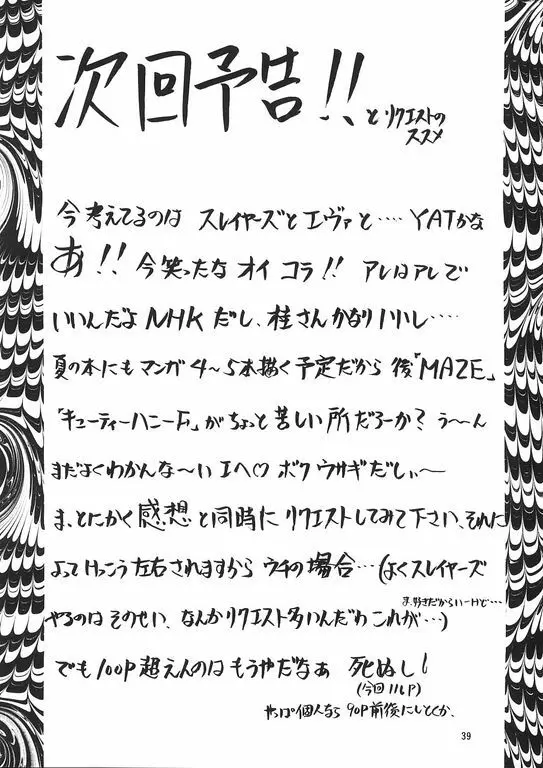 次回予告!! とリクエストのススメ
今考えてるのは スレイヤーズとエヴァと‥‥YATかな
あ!! 今笑ったな オイ コラ!! アレはアレで
いいんだよNHKだし、桂さんかなりいいし‥‥
夏の本にもマンガ4〜5本描く予定だから 後「MAZE」
「キューティーハニーF」がちょっと苦しい所だろーか? う〜ん
まだよくわかんな〜い エヘ♡ ボク ウサギだしぃ〜
ま、とにかく感想と同時にリクエストしてみて下さい、それに
よってけっこう左右されますから ウチの場合…(よくスレイヤーズ
やるのはそのせい、なんかリクエスト多いんだわ これが…)
ま、好きだからいーけど…
でも100P超えんのはもうやだなぁ 死ぬし!
(今回116P)
やっぱ個人なら90P前後にしとくか、
39